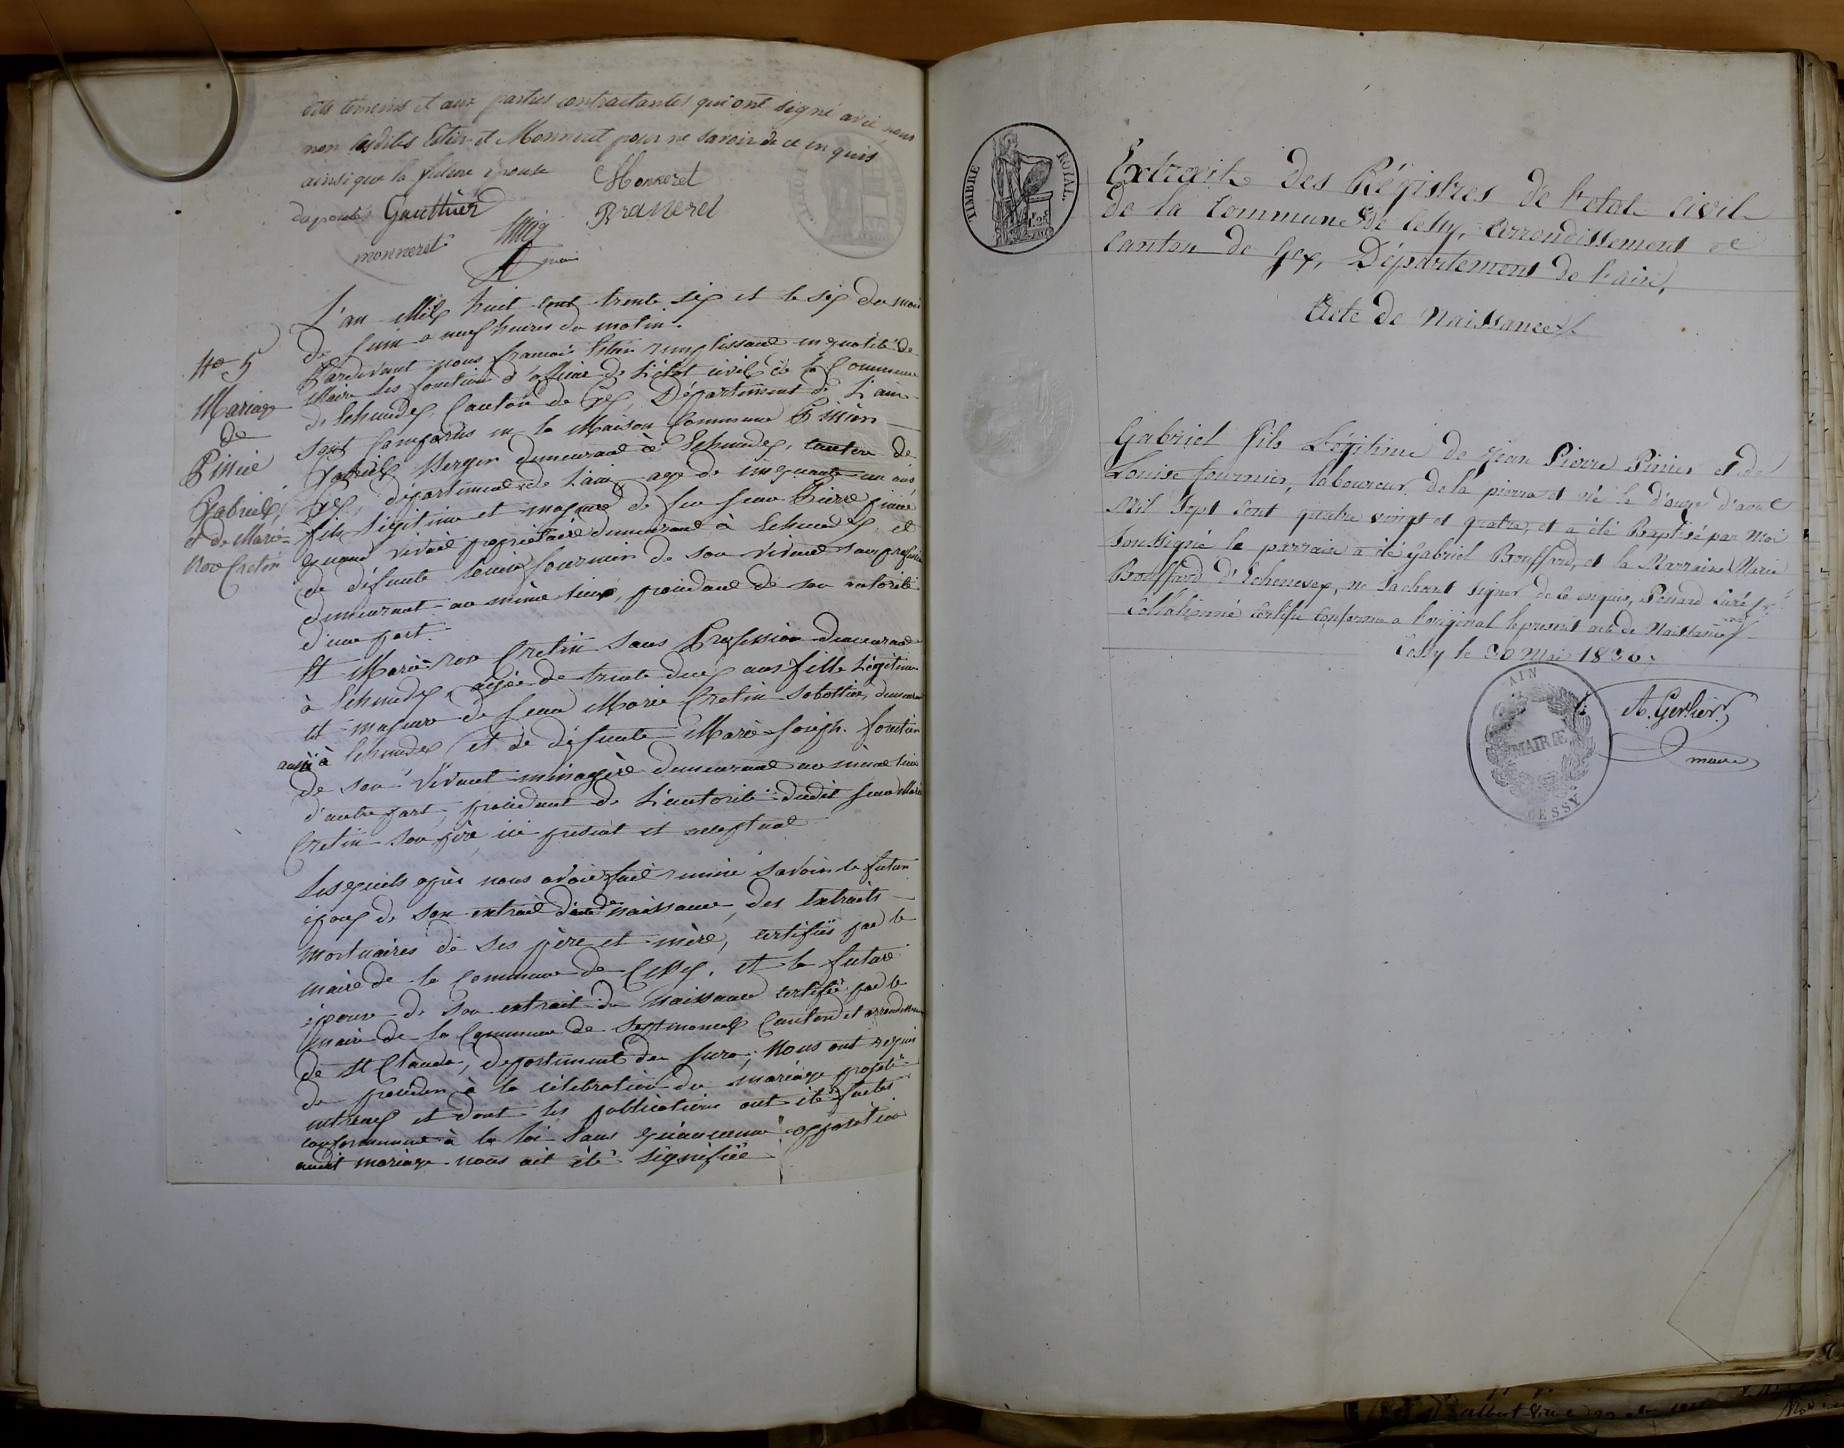 dits témoins et aux parties contractantes qui ont signé avec nous
non lesdits et Monneret pour ne savoir de ce enquis
ainsi que la future épouse
Monneret
Gauthier
monneret
L'an Mil huit cent trente six et le six du mois
de Juin a neuf heures du matin.
Pardevant nous françois remplissant en qualité de
Maire les fonctions d'officier de l'état civil de la Commune
de Echenevex Canton de Gex, Département de l'ain
sont Comparus en la Maison Commune Pinier
Gabriel Berger demeurant à Echenevex, canton de
Gex, département de l'ain, agé de cinquante un ans
fils légitime et majeur de feu Jean Pierre pinier
quand vivait propriétaire demeurant à Echenevex, et
de défunte Louise fournier de son vivant sans profession
demeurant au même lieu, procédant de son autorité
d'une part.
Et Marie-Rose Cretin sans Profession demeurant
à Echenevex, agée de trente deux ans fille légitime
et majeure de Jean Marie Cretin Sabottier, demeurant
aussi à Echenevex, et de défunte Marie-Joseph.
de son vivant ménagère demeurant au même lieu
d'autre part, procédant de l'autorité dudit Jean Marie
Cretin son père, ici présent et acceptant
Lesquels après nous avoir fait remise savoir le futur
époux de son extrait d'acte de naissance, des extraits
mortuaires de ses père et mère, certifiés par le
maire de la commune de Cessy, et la future
épouse de son extrait de naissance certifié par le
maire de la Commune de Septmoncel Canton et arrondissement
de St Claude, département du Jura; Nous ont requis
de procéder à la célébration du mariage projeté
entr'eux et dont les publications ont été faites
conformément à la loi sans qu'aucune opposition
audit mariage nous ait été signifiée
No 5
Mariage
de
Pinié
Gabriel,
& de Marie-
Rose Cretin
TIMBRE ROYAL.
Extrait des Régistres de l'etat civil
de la Commune de Cessy, Arrondissement et
Canton de Gex, Département de l'ain,
Acte de Naissance
Gabriel fils Légitime de Jean Pierre Pinier et de
Louise fournier, laboureur de la pierre est né le d'avril
Mil Sept Cent quatre vingt et quatre, et a été Baptisé par Moi
Soussigné le parrain a été Gabriel Bouffard, et la Marraine Marie
Bouffard d'Echenevex, ne sachant signer de le enquis, Penard Curé
Collationné Certifié Conforme a l'original le présent acte de Naissance
Cessy le 30 Mai 1836.
A. Gerlier
maire
AIN
MAIRIE
CESSY